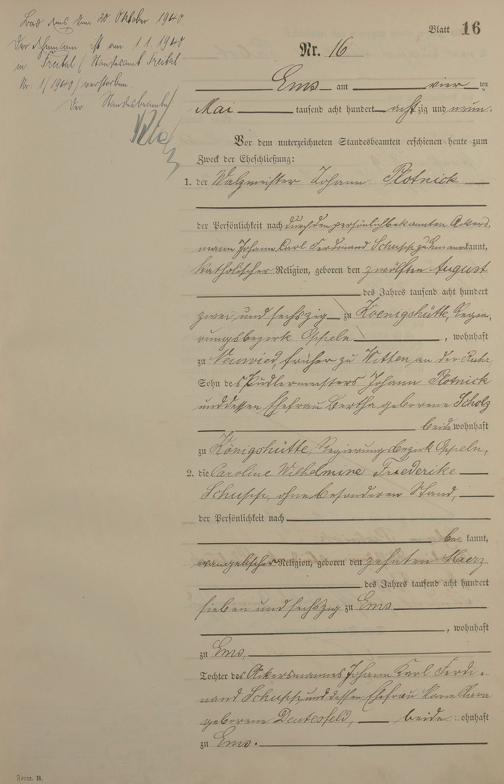 Bad Ems den 20. Oktober 1940
Der Ehemann ist am 1.1.1940
in Freital (Standesamt Freital
Nr. 1/1940) verstorben.
Der Standesbeamte
Blatt 16
Nr. 16
Ems am vier ten
Mai tausend acht hundert achtzig und neun.
Vor dem unterzeichneten Standesbeamten erschienen heute zum
Zweck der Eheschließung:
1. der Walzmeister Johann Plotnick
der Persönlichkeit nach durch den persönlich bekannten Ackers-
mann Johann Karl Ferdinand Schupp zu Ems anerkannt,
katholischer Religion, geboren den zwölften August
des Jahres tausend acht hundert
zwei und sechszig zu Koenigshütte, Regie-
rungsbezirk Oppeln, wohnhaft
zu Neuwied, früher zu Witten an der Ruhr
Sohn des Pudlermeisters Johann Plotnick
und dessen Ehefrau Bertha geborene Scholz
beide wohnhaft
zu Königshütte, Regierungsbezirk Oppeln,
2. die Caroline Wilhelmine Friederike
Schupp, ohne besonderen Stand,
der Persönlichkeit nach
be kannt,
evangelischer Religion, geboren den zehnten Maerz
des Jahres tausend acht hundert
sieben und sechszig zu Ems
, wohnhaft
zu Ems,
Tochter des Ackersmannes Johann Karl Ferdi-
nand Schupp und dessen Ehefrau
geborene beide wohnhaft
zu Ems.
Form. B.